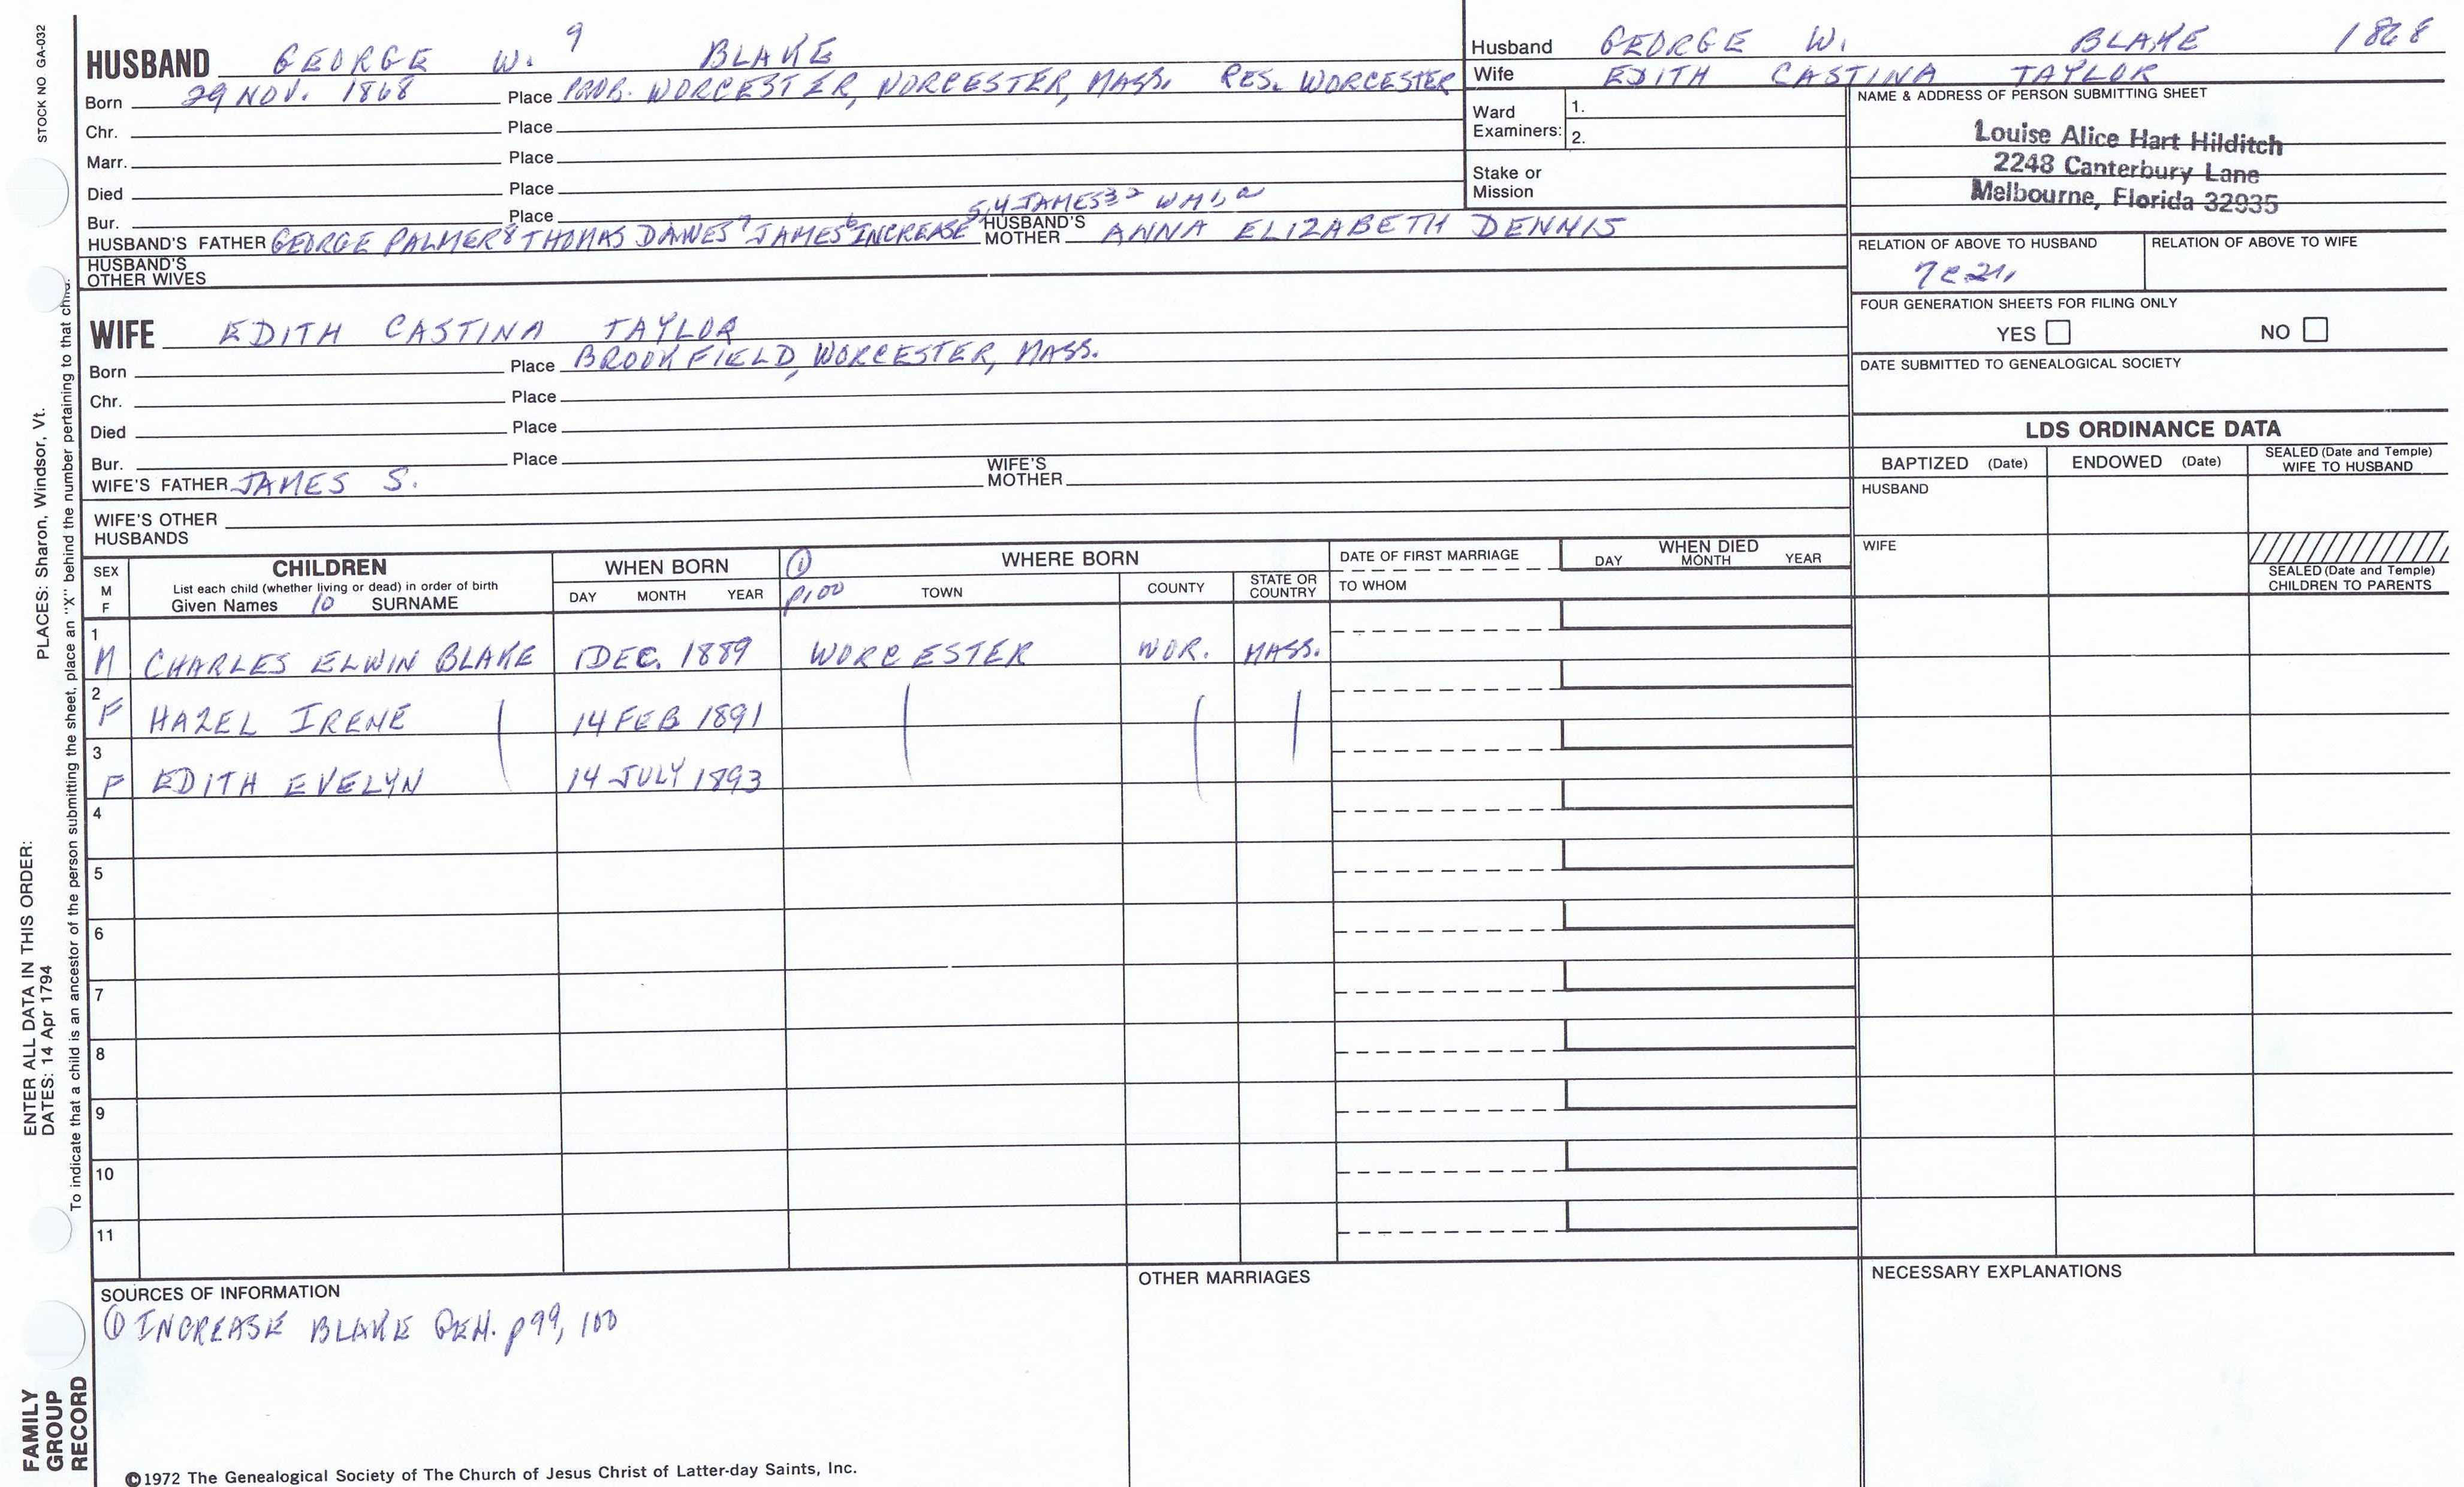 STOCK NO GA-032
HUSBAND GEORGE W. 9 BLAKE
Born 29 NOV. 1868 Place PROB. WORCESTER, WORCESTER, MASS. RES. WORCESTER
Chr. Place
Marr. Place
Died Place
Bur. Place
5,4 JAMES3 2 WM1,2
HUSBAND'S FATHER GEORGE PALMER8 THOMAS DAWES7 JAMES6 INCREASE HUSBAND'S MOTHER ANNA ELIZABETH DENNIS
HUSBAND'S OTHER WIVES
Husband GEORGE W. BLAKE 1868
Wife EDITH CASTINA TAYLOR
Ward Examiners: 1.
2.
Stake or Mission
NAME & ADDRESS OF PERSON SUBMITTING SHEET
Louise Alice Hart Hilditch
2248 Canterbury Lane
Melbourne, Florida 32935
RELATION OF ABOVE TO HUSBAND RELATION OF ABOVE TO WIFE
7C2r,
FOUR GENERATION SHEETS FOR FILING ONLY
YES NO
DATE SUBMITTED TO GENEALOGICAL SOCIETY
WIFE EDITH CASTINA TAYLOR
Born Place BROOKFIELD, WORCESTER, MASS.
Chr. Place
Died Place
Bur. Place
WIFE'S FATHER JAMES S. WIFE'S MOTHER
WIFE'S OTHER HUSBANDS
LDS ORDINANCE DATA
BAPTIZED (Date) ENDOWED (Date) SEALED (Date and Temple) WIFE TO HUSBAND
HUSBAND
WIFE
SEALED (Date and Temple) CHILDREN TO PARENTS
SEX M F
CHILDREN
List each child (whether living or dead) in order of birth
Given Names 10 SURNAME
WHEN BORN
DAY MONTH YEAR
① p100
WHERE BORN
TOWN COUNTY STATE OR COUNTRY
DATE OF FIRST MARRIAGE
TO WHOM
WHEN DIED
DAY MONTH YEAR
1 M CHARLES ELWIN BLAKE 1 DEC. 1889 WORCESTER WOR. MASS.
2 F HAZEL IRENE 14 FEB 1891
3 F EDITH EVELYN 14 JULY 1893
4
5
6
7
8
9
10
11
SOURCES OF INFORMATION
① INCREASE BLAKE GEN. p99, 100
OTHER MARRIAGES
NECESSARY EXPLANATIONS
©1972 The Genealogical Society of The Church of Jesus Christ of Latter-day Saints, Inc.
FAMILY GROUP RECORD
ENTER ALL DATA IN THIS ORDER:
DATES: 14 Apr 1794
PLACES: Sharon, Windsor, Vt.
To indicate that a child is an ancestor of the person submitting the sheet, place an "X" behind the number pertaining to that child.